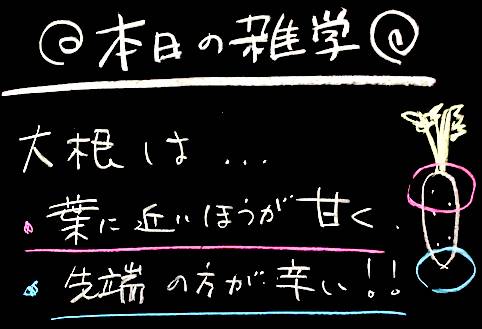 @本日の雑学@
大根は...
・葉に近いほうが甘く、
・先端の方が辛い!!